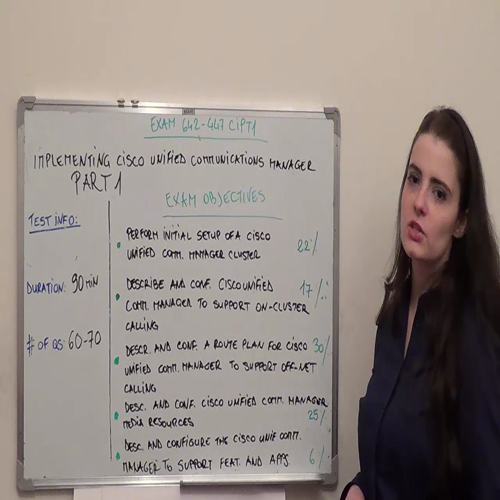 EXAM 642-447 CIPT1
IMPLEMENTING CISCO UNIFIED COMMUNICATIONS MANAGER
PART 1
EXAM OBJECTIVES
TEST INFO:
DURATION: 90 MIN
# OF QS: 60-70
PERFORM INITIAL SETUP OF A CISCO
UNIFIED COMM. MANAGER CLUSTER 22%
DESCRIBE AND CONF. CISCO UNIFIED
COMM. MANAGER TO SUPPORT ON-CLUSTER
CALLING 17%
DESCR. AND CONF. A ROUTE PLAN FOR CISCO 30%
UNIFIED COMM. MANAGER TO SUPPORT OFF-NET
CALLING
DESC. AND CONF. CISCO UNIFIED COMM. MANAGER
MEDIA RESOURCES 25%
DESC. AND CONFIGURE THE CISCO UNIF COMM.
MANAGER TO SUPPORT FEAT. AND APPS. 6%